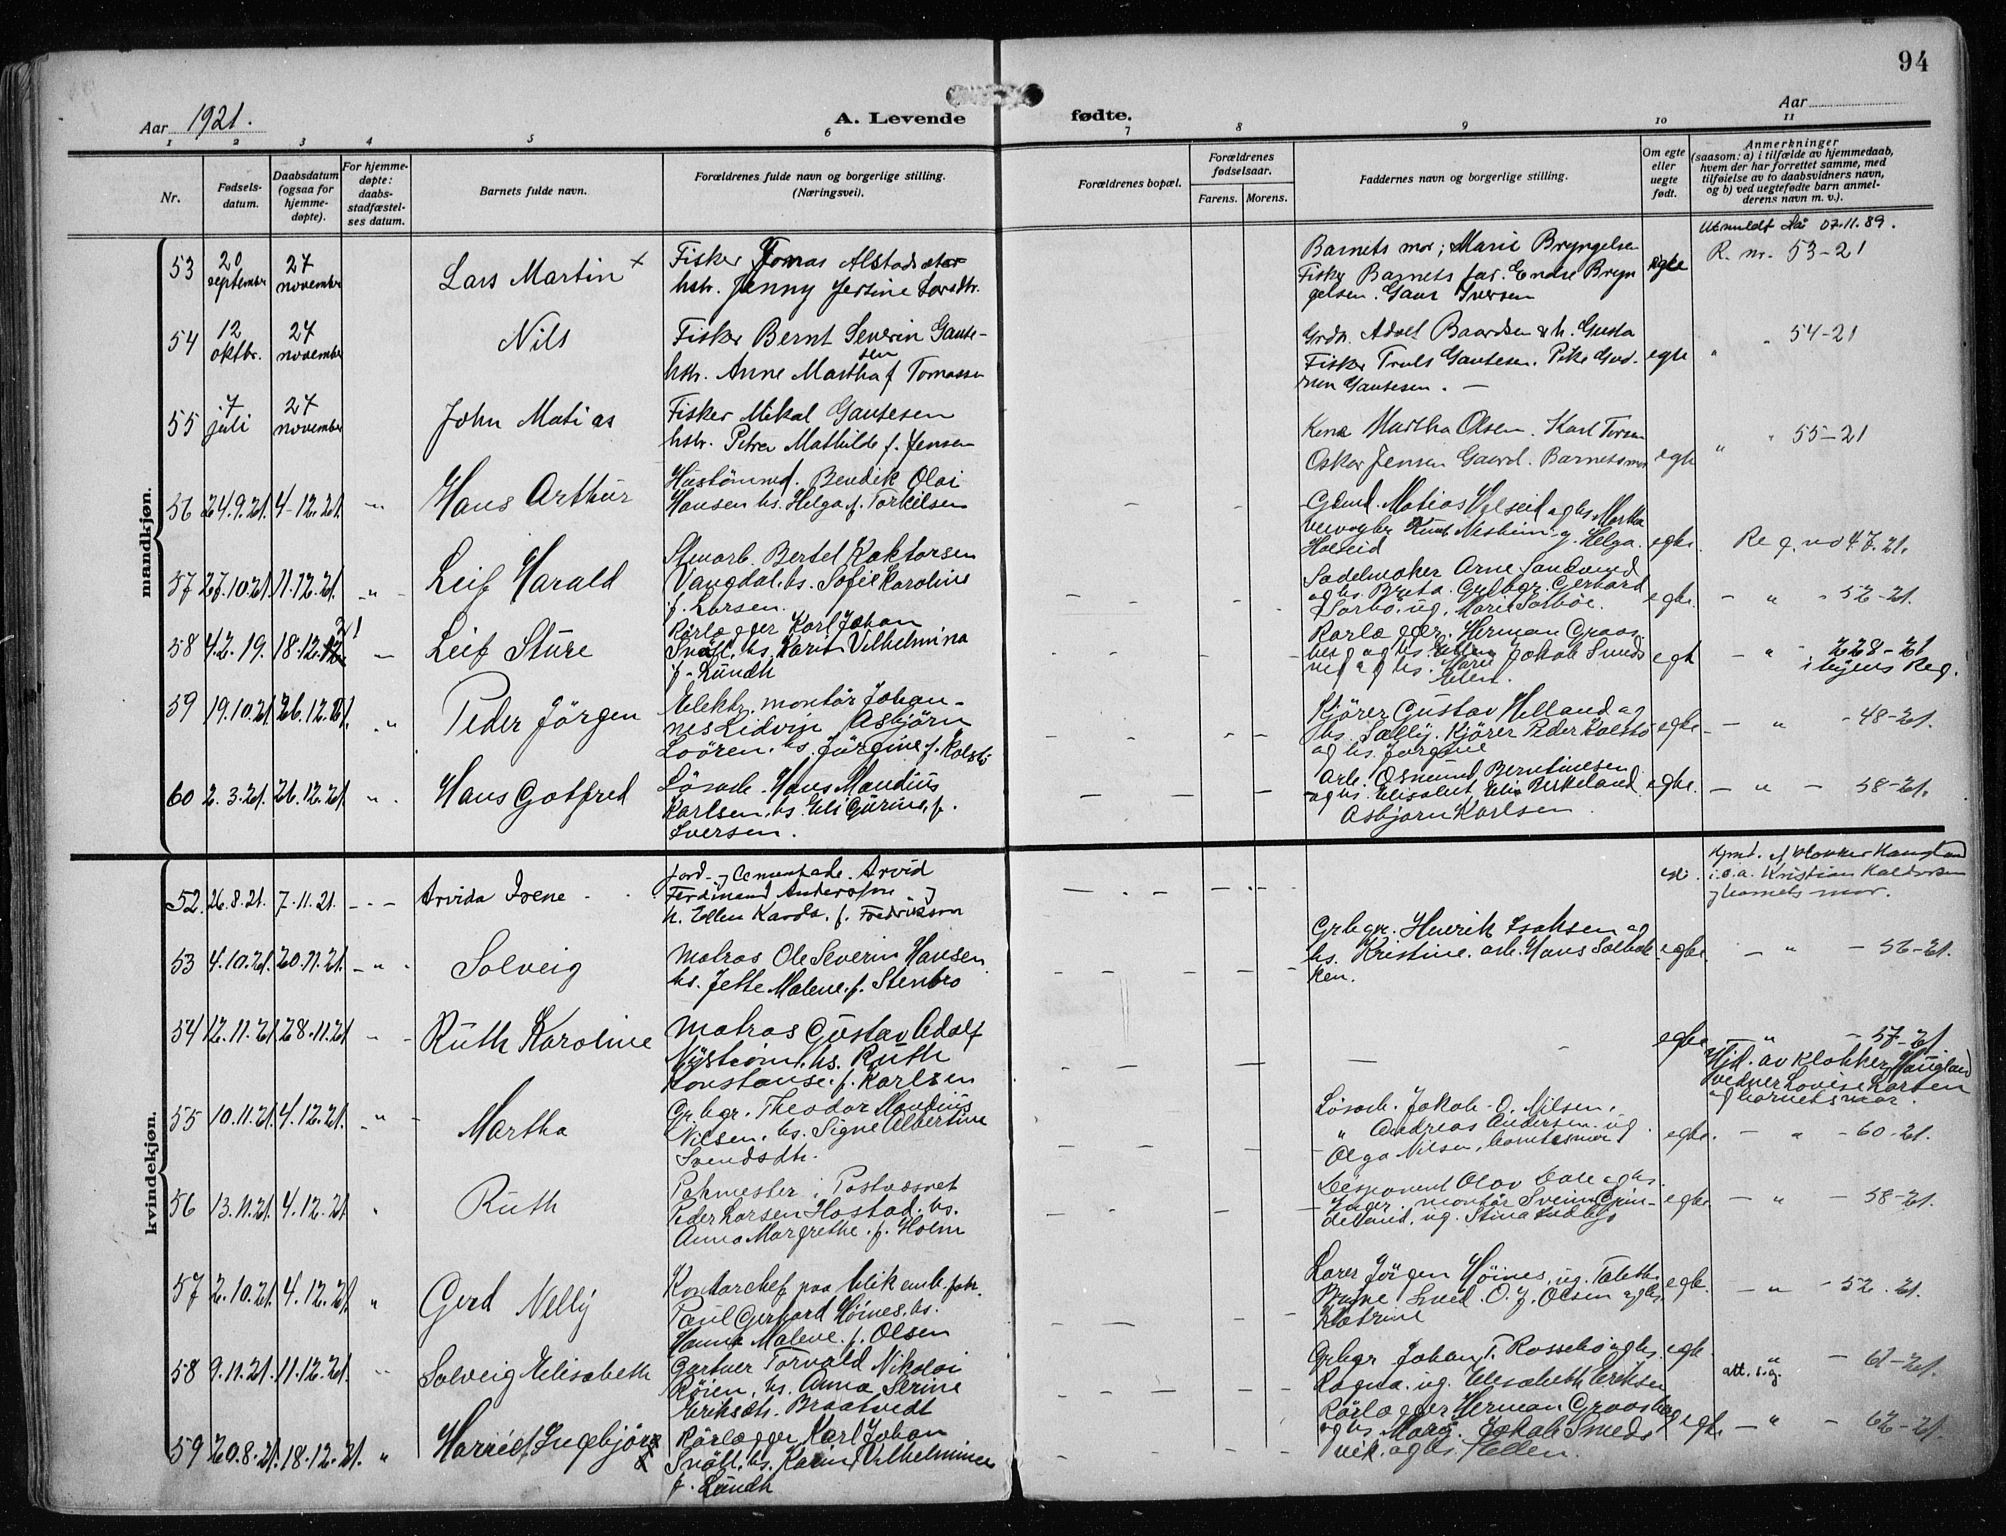 94
Aar 1921.
A. Levende fødte.
Aar
1 2 3 4 5 6 7 8 9 10 11
Nr.
Fødsels-
datum.
Daabsdatum
(ogsaa for
hjemme-
døpte).
For hjemme-
døpte:
daabs-
stadfæstel-
ses datum.
Barnets fulde navn.
Forældrenes fulde navn og borgerlige stilling.
(Næringsvei).
Forældrenes bopæl.
Forældrenes
fødselsaar.
Farens. Morens.
Faddernes navn og borgerlige stilling.
Om egte
eller
uegte
født.
Anmerkninger
(saasom: a) i tilfælde av hjemmedaab,
hvem der har forrettet samme, med
tilføielse av to daabsvidners navn,
og b) ved uegtefødte barn anmel-
derens navn m. v.).
mandkjøn.
07.11.89.
53 20 september 27 november Lars Martin x
Fisker Tomas Alstadsæter
hstr. Jenny Jersine Larsdtr.
Barnets mor; Marie Bryngelsen
Fisker Barnets far. Endre Bryn
gelsen. Gaus Iversen
egte R. nr. 53-21
54 12 oktbr. 27 november Nils
Fisker Bernt Severin Gaute-
sen
hstr. Anne Martha f Tomassen
Grdr. Adolf Baardsen & h. Gusta
Fisker Truls Gautesen. Pike Gud-
run Gautesen. —
egte " " 54-21
55 7 juli 27 november John Matias
Fisker Mikal Gautesen
hstr. Petra Mathilde f. Jensen
Kona Martha Olsen. Karl
Oskar Jensen Gaard. Barnets mor
egte " " 55-21
56 24.9.21. 4-12.21. -"- Hans Arthur
Hustømmd. Bendik Olai
Hansen hs. Helga f. Torkilsen
Matias og hs. Martha
Helga.
egte. Reg. no 47.21.
57 27.10.21. 11.12.21. -"- Leif Harald
Bertel
Vangdal. hs. Sofie Karoline
f. Larsen.
Sadelmaker Arne Sandvind
og hs. Berta. Grbgr. Gerhard
ug. Marie
egte. - " - 52-21.
58 4.2.19. 18.12.21 - Leif Sture
Rörlægger Karl Johan
Snäll. hs. Karin Vilhelmina
f. Lundh
Rörlægger. Herman Graas
berg og hs. Marie Jakob Smeds
vig og hs. Ellen.
egte - " - 228-21
i byens Reg.
59 19.10.21 26.12.21. " Peder Jörgen
Elektr. montör Johan-
nes Lidvin Asbjörn
Looren. hs. Jörgine f. Kolstö
Kjörer Gustav Helland og
hs. Sally. Kjörer Peder Kolstö
og hs. Jorgine
egte - " - 48-21.
60 2.3.21. 26.12.21. " Hans Gotfred
Lösarb. Hans Mandius
Karlsen. hs. Eli Gurine f.
Iversen.
Arb. Osmund Berntinesen
og hs. Elisabet, Elis Birkeland
Asbjørn Karlsen
egte. - " - 58-21.
kvindekjøn.
52. 26.8.21. 7.11.21. - - - Arvida Irene
Jord- og Cementarb. Arvid
Ferdinand Andersson og
h. Ellen Karda. f. Fredrikson
Hjmd. af klokker Haugland
i. o. a. Kristian Kaldersen
og barnets mor.
53 4.10.21. 20.11.21. -"- Solveig
Matros Ole Severin Hansen
hs. Jette Malene. f. Stenbro
Grbgr. Henrik Isaksen og
hs. Kristine. arb. Hans Solbak
ken.
egte. - " - 56-21.
54 12.11.21 28.11.21 - - Ruth Karoline
Matros Gustav Adolf
Nyström. hs. Ruth
Konstanse. f. Karlsen
egte - " - 57-21
Hjd. av klokker Haugland
vidner Lovise Larsen
og barnets mor.
55 10.11.21 4.12.21. " Martha
Grbgr. Theodor Mandius
Nilsen. hs. Signe Albertine
Svendsdtr.
Lösarb. Jakob O. Nilsen,
" Andreas Andersen. ug
Olga Nilsen, barnets mor
egte. - " - 60-21.
56 13.11.21. 4.12.21. " Ruth
Pakmester i Postvæsnet
Peder Larsen Hostad. hs.
Anna Margrethe. f. Holm
Disponent Olav og hs.
Inger. montör Svein Grin-
deland. ug. Stina
egte. - " - 58-21.
57 2.10.21. 4.12.21. " Gerd Nelly
Kontorchef paa blik emb. fabr.
Paul Gerhard Höines. hs.
Hanna Malene. f. Olsen
Lærer Jörgen Höines. ug. Tabeth
Bryne Smed. O. J. Olsen og hs.
Katrine
egte. - " - 52.21.
58 9.11.21. 11.12.21. " Solveig Elisabeth
Gartner Torvald Nikolai
Röien. hs. Anna Serine
Eriksdtr. Braatvedt
Grbgr Johan T. Rossebö og hs.
Ragna. ug. Elisabeth Eriksen
egte. att. s.g. " - 61-21.
59 20.8.21. 18.12.21. " Harriet Ingebjörg x
Rörlægger Karl Johan
Snäll. hs. Karin Vilhelmina
f. Lundh
Rörlægger Herman Graasberg
og hs. Marg. Jakob Smeds
vik. og hs. Ellen.
egte - " - 62-21.